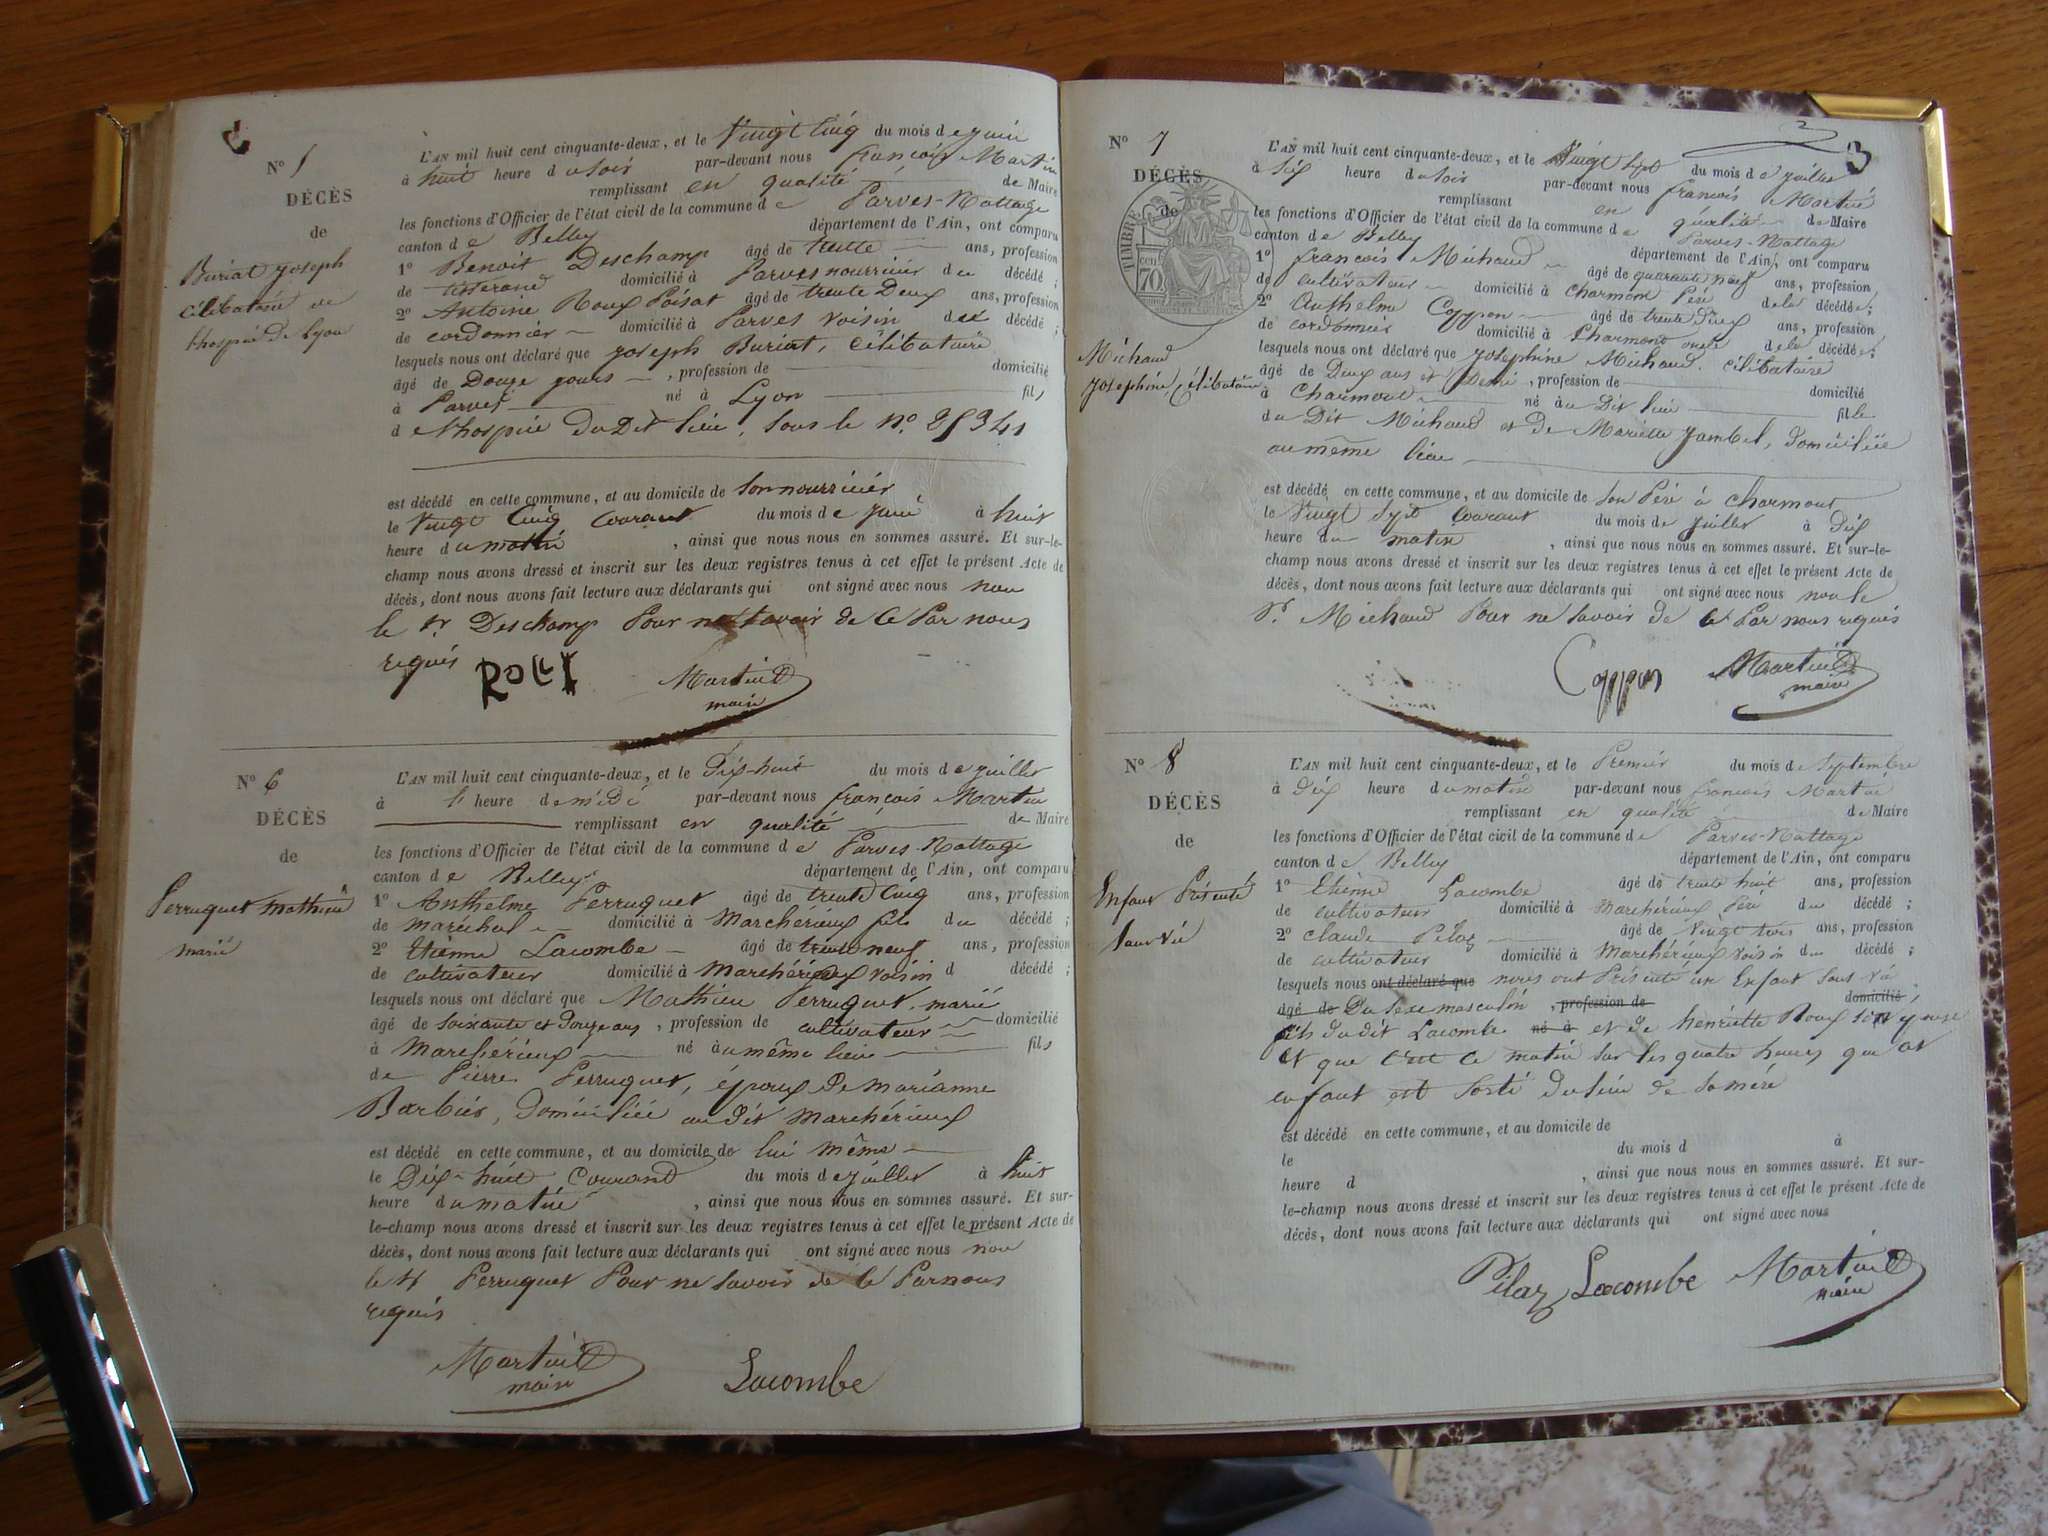 N° 5
DÉCÈS
de
Buriat Joseph
célibataire de
L'AN mil huit cent cinquante-deux, et le Vingt Cinq du mois de juin
à huit heure du soir par-devant nous françois Martin
remplissant en qualité de Maire
les fonctions d'Officier de l'état civil de la commune de Parves-Nattage
canton de Belley département de l'Ain, ont comparu
1° Benoit Deschamp âgé de trente ans, profession
de tisserand domicilié à Parves nourricier du décédé ;
2° Antoine Roux Poisat âgé de trente Deux ans, profession
de cordonnier domicilié à Parves voisin du décédé ;
lesquels nous ont déclaré que Joseph Buriat, célibataire
âgé de Douze jours , profession de domicilié
à Parves né à Lyon fils
de l'hospice Du Dit lieu, sous le N° 25341
est décédé en cette commune, et au domicile de son nourricier
le Vingt Cinq Courant du mois de juin à huit
heure du matin , ainsi que nous nous en sommes assuré. Et sur-le-
champ nous avons dressé et inscrit sur les deux registres tenus à cet effet le présent Acte de
décès, dont nous avons fait lecture aux déclarants qui ont signé avec nous non
le Sr Deschamp Pour ne savoir de ce Par nous
requis
Martin
maire
N° 6
DÉCÈS
de
Perruquet Mathieu
marié
L'AN mil huit cent cinquante-deux, et le Dix-huit du mois de juillet
à heure de midi par-devant nous françois Martin
remplissant en qualité de Maire
les fonctions d'Officier de l'état civil de la commune de Parves-Nattage
canton de Belley département de l'Ain, ont comparu
1° Anthelme Perruquet âgé de trente Cinq ans, profession
de maréchal domicilié à Marchérieux fils du décédé ;
2° Etienne Lacombe âgé de trente neuf ans, profession
de cultivateur domicilié à Marchérieux voisin d décédé ;
lesquels nous ont déclaré que Mathieu Perruquet, marié
âgé de soixante et douze ans , profession de cultivateur domicilié
à Marchérieux né au même lieu fils
de Pierre Perruquet, époux de Marianne
Barbier, domiciliée au dit Marchérieux
est décédé en cette commune, et au domicile de lui même
le Dix-huit Courant du mois de juillet à huit
heure du matin , ainsi que nous nous en sommes assuré. Et sur-
le-champ nous avons dressé et inscrit sur les deux registres tenus à cet effet le présent Acte de
décès, dont nous avons fait lecture aux déclarants qui ont signé avec nous non
le Sr Perruquet Pour ne savoir de ce Par nous
requis
Martin
maire
Lacombe
3
N° 7
DÉCÈS
de
TIMBRE
70
Michaud
Joséphine, Célibataire
L'AN mil huit cent cinquante-deux, et le Vingt Sept du mois de juillet
à six heure du soir par-devant nous françois Martin
remplissant en qualité de Maire
les fonctions d'Officier de l'état civil de la commune de Parves-Nattage
canton de Belley département de l'Ain, ont comparu
1° françois Michaud âgé de quarante neuf ans, profession
de cultivateur domicilié à Charmont Père de la décédée ;
2° Anthelme Coppon âgé de trente deux ans, profession
de cordonnier domicilié à Charmont oncle de la décédée ;
lesquels nous ont déclaré que Joséphine Michaud, célibataire
âgé de Deux ans et Demi , profession de domicilié
à Charmont né au Dit lieu fille
du Dit Michaud et de Mariette Jambel, domiciliée
au même lieu
est décédé en cette commune, et au domicile de son Père à Charmont
le Vingt Sept Courant du mois de juillet à Dix
heure du matin , ainsi que nous nous en sommes assuré. Et sur-le-
champ nous avons dressé et inscrit sur les deux registres tenus à cet effet le présent Acte de
décès, dont nous avons fait lecture aux déclarants qui ont signé avec nous non le
Sr Michaud Pour ne savoir de ce Par nous requis
Coppon
Martin
maire
N° 8
DÉCÈS
de
Enfant Présenté
Sans vie
L'AN mil huit cent cinquante-deux, et le Premier du mois de Septembre
à Dix heure du matin par-devant nous françois Martin
remplissant en qualité de Maire
les fonctions d'Officier de l'état civil de la commune de Parves-Nattage
canton de Belley département de l'Ain, ont comparu
1° Etienne Lacombe âgé de trente huit ans, profession
de cultivateur domicilié à Marchérieux Père du décédé ;
2° Claude Pélaz âgé de Vingt trois ans, profession
de cultivateur domicilié à Marchérieux voisin du décédé ;
lesquels nous ont déclaré que nous ont Présenté un Enfant Sans vie
âgé de Du Sexe masculin , profession de domicilié ;
fils du dit Lacombe né à et de henriette Roux son épouse
et que c'est ce matin sur les quatre heures que cet
enfant est Sorti du sein de sa mère
est décédé en cette commune, et au domicile de
le du mois d à
heure d , ainsi que nous nous en sommes assuré. Et sur-
le-champ nous avons dressé et inscrit sur les deux registres tenus à cet effet le présent Acte de
décès, dont nous avons fait lecture aux déclarants qui ont signé avec nous
Pélaz Lacombe Martin
maire